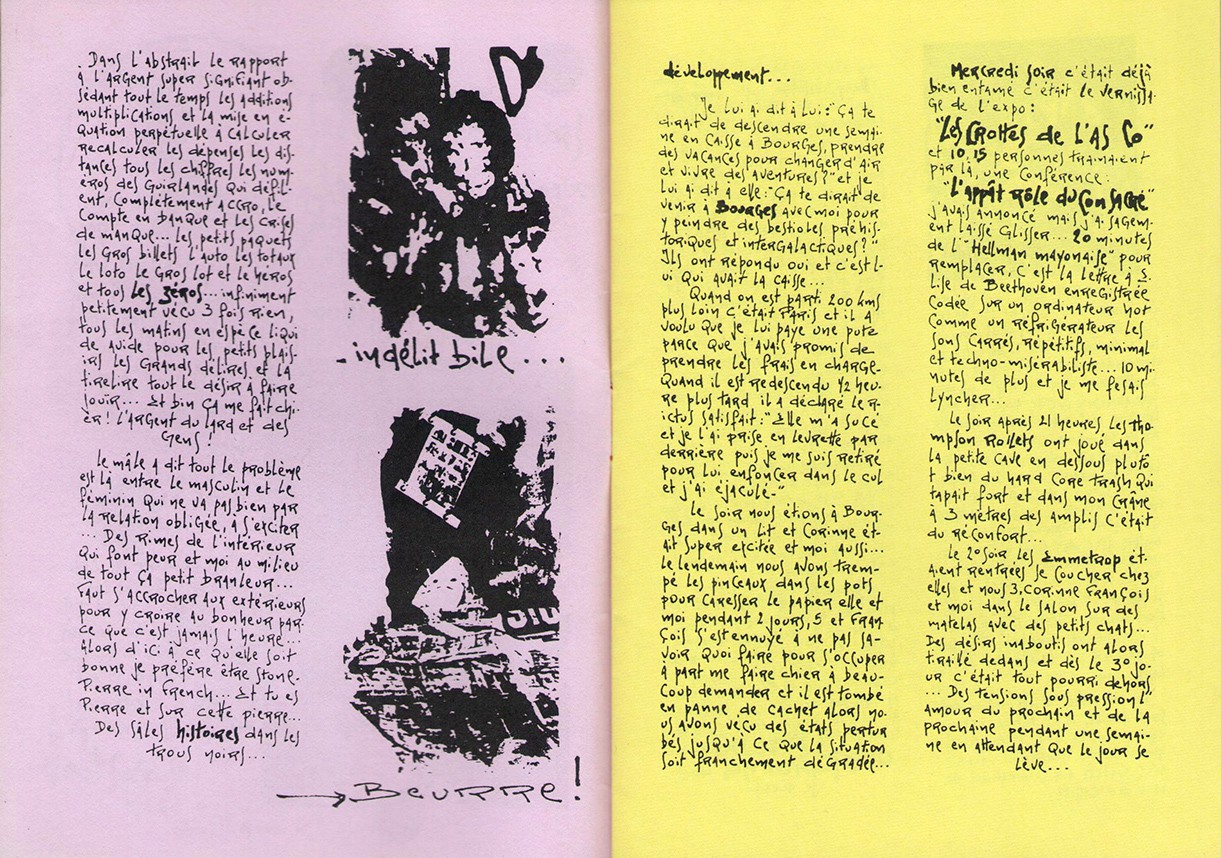 . Dans l'abstrait le rapport
à l'argent super signifiant ob-
sédant tout le temps les additions
multiplications et la mise en é-
quation perpétuelle à calculer
recalculer les dépenses les dis-
tances tous les chiffres les num-
eros des guirlandes qui défil-
ent, complètement accro, le
compte en banque et les crises
de manque... les petits paquets
les gros billets l'auto les totaux
le loto le gros lot et le héros
et tous les zéros... infiniment
petitement vécu 3 fois rien,
tous les matins en espèce liqui
de avide pour les petits plais-
irs les grands délires et la
tirelire tout le désir à faire
jouir... Et bin ça me fait chi-
er! l'argent du lard et des
gens!
Le mâle a dit tout le problème
est là entre le masculin et le
féminin qui ne va pas bien par
la relation obligée, à s'exciter
... Des rimes de l'intérieur
qui font peur et moi au milieu
de tout ça petit branleur...
Faut s'accrocher aux extérieurs
pour y croire au bonheur par-
ce que c'est jamais l'heure...
Alors d'ici à ce qu'elle soit
bonne je préfère être stone.
Pierre in french... Et tu es
Pierre et sur cette pierre...
Des sales histoires dans les
trous noirs...
- indélit bile...
→ Beurre!
développement...
Je lui ai dit à lui: "Ça te
dirait de descendre une semai-
ne en caisse à Bourges, prendre
des vacances pour changer d'air
et vivre des aventures?" et je
lui ai dit à elle: "Ça te dirait de
venir à Bourges avec moi pour
y peindre des bestioles préhis-
toriques et intergalactiques?"
Ils ont répondu oui et c'est l-
ui qui avait la caisse...
Quand on est parti 200 kms
plus loin c'était Paris et il a
voulu que je lui paye une pute
parce que j'avais promis de
prendre les frais en charge.
Quand il est redescendu 1/2 heu-
re plus tard il a déclaré le r-
ictus satisfait: "Elle m'a sucé
et je l'ai prise en levrette par
derrière puis je me suis retiré
pour lui enfoncer dans le cul
et j'ai éjaculé."
Le soir nous étions à Bour-
ges dans un lit et Corinne ét-
ait super excitée et moi aussi...
Le lendemain nous avons trem-
pé les pinceaux dans les pots
pour caresser le papier elle et
moi pendant 2 jours, 5 et Fran
çois s'est ennuyé à ne pas sa-
voir quoi faire pour s'occuper
à part me faire chier à beau-
coup demander et il est tombé
en panne de cachet alors no-
us avons vécu des états pertur
bés jusqu'à ce que la situation
soit franchement dégradée...
Mercredi soir c'était déjà
bien entamé c'était le vernissa-
ge de l'expo:
"Les Crottes de l'As Co"
et 10.15 personnes trainaient
par là, une conférence:
"L'appât rôle du con sacré"
j'avais annoncé mais j'ai sagem-
ent laissé glisser... 20 minutes
de l'"Hellman mayonaise" pour
remplacer, c'est la lettre à É-
lise de Beethoven enregistrée
codée sur un ordinateur not
comme un réfrigérateur les
sons carrés, répétitifs, minimal
et techno-misérabiliste... 10 mi-
nutes de plus et je me fesais
lyncher...
Le soir après 21 heures, les tho
mpson Rollets ont joué dans
la petite cave en dessous plutô
t bien du hard core trash qui
tapait fort et dans mon crâne
à 3 mètres des amplis c'était
du réconfort...
Le 2º soir les Emmetrop ét-
aient rentrées se coucher chez
elles et nous 3, Corinne François
et moi dans le salon sur des
matelas avec des petits chats...
Des désirs inaboutis ont alors
tiraillé dedans et dès le 3º jo-
ur c'était tout pourri dehors
... Des tensions sous pression l'
amour du prochain et de la
prochaine pendant une semai-
ne en attendant que le jour se
lève...